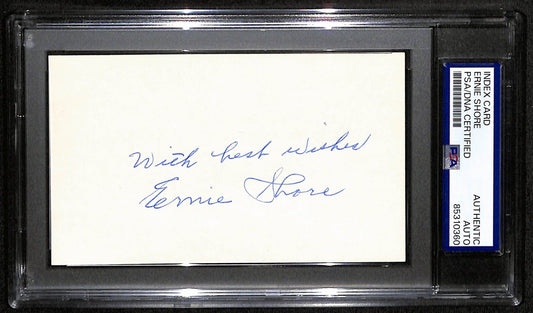 With best wishes
Ernie Shore
INDEX CARD
ERNIE SHORE
PSA/DNA CERTIFIED
PSA
AUTHENTIC
AUTO
85310360